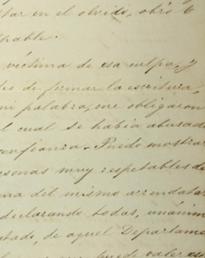 tar en el olvido, obró
víctima de esa culpa, y
es de firmar la escritura,
mi palabra, me obligaron
l cual se había abusado
confianza. Puedo mostrar
sonas muy respetables de
ra del mismo arrendatar
declarando todas, unánim
tado, de aquel Departame
valer es